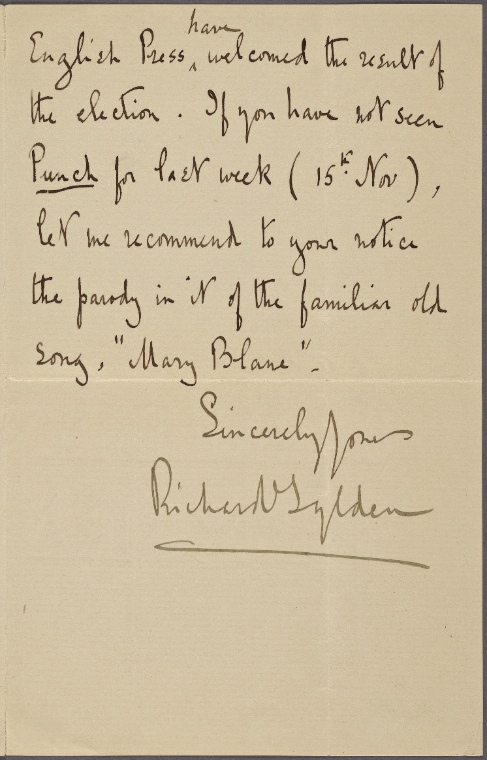 have
English Press ^ welcomed the result of
the election. If you have not seen
Punch for last week (15th Nov),
let me recommend to your notice
the parody in it of the familiar old
song, "Mary Blane".
Sincerely yours
Richard Sylden